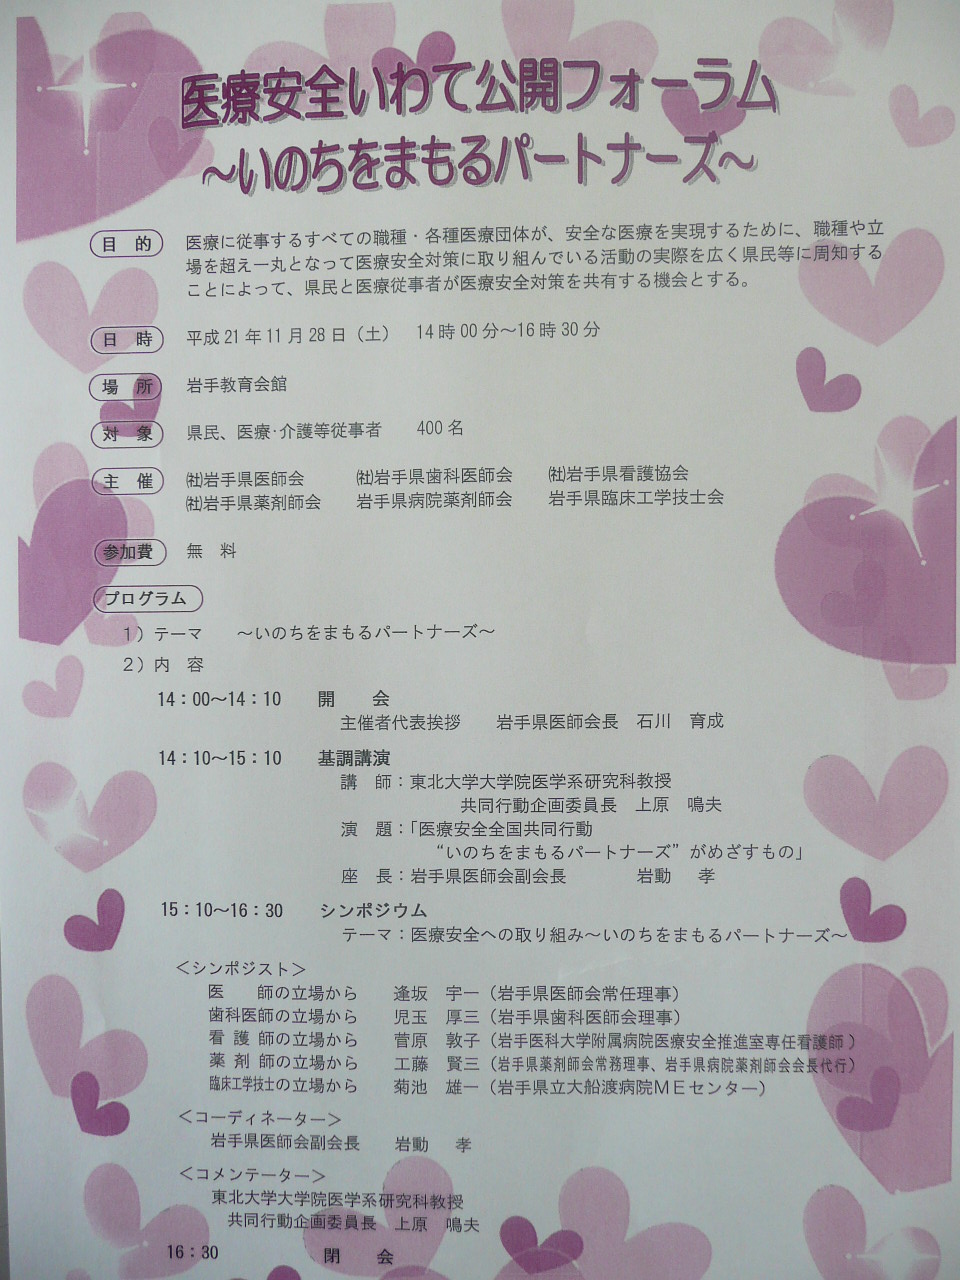 医療安全いわて公開フォーラム
～いのちをまもるパートナーズ～
目　的　医療に従事するすべての職種・各種医療団体が、安全な医療を実現するために、職種や立
場を超え一丸となって医療安全対策に取り組んでいる活動の実際を広く県民等に周知する
ことによって、県民と医療従事者が医療安全対策を共有する機会とする。
日　時　平成21年11月28日（土）　14時00分～16時30分
場　所　岩手教育会館
対　象　県民、医療･介護等従事者　　400名
主　催　㈳岩手県医師会　　㈳岩手県歯科医師会　　㈳岩手県看護協会
㈳岩手県薬剤師会　　岩手県病院薬剤師会　　岩手県臨床工学技士会
参加費　無　料
プログラム
１）テーマ　　～いのちをまもるパートナーズ～
２）内　容
14：00～14：10　　開　　会
主催者代表挨拶　　岩手県医師会長　石川　育成
14：10～15：10　　基調講演
講　師：東北大学大学院医学系研究科教授
共同行動企画委員長　上原　鳴夫
演　題：「医療安全全国共同行動
“いのちをまもるパートナーズ”がめざすもの」
座　長：岩手県医師会副会長　　　　岩動　孝
15：10～16：30　　シンポジウム
テーマ：医療安全への取り組み～いのちをまもるパートナーズ～
＜シンポジスト＞
医　　師の立場から　　逢坂　宇一（岩手県医師会常任理事）
歯科医師の立場から　　児玉　厚三（岩手県歯科医師会理事）
看 護 師の立場から　　菅原　敦子（岩手医科大学附属病院医療安全推進室専任看護師）
薬 剤 師の立場から　　工藤　賢三（岩手県薬剤師会常務理事、岩手県病院薬剤師会会長代行）
臨床工学技士の立場から　　菊池　雄一（岩手県立大船渡病院ＭＥセンター）
＜コーディネーター＞
岩手県医師会副会長　　岩動　孝
＜コメンテーター＞
東北大学大学院医学系研究科教授
共同行動企画委員長　上原　鳴夫
16：30　　　　　閉　　会